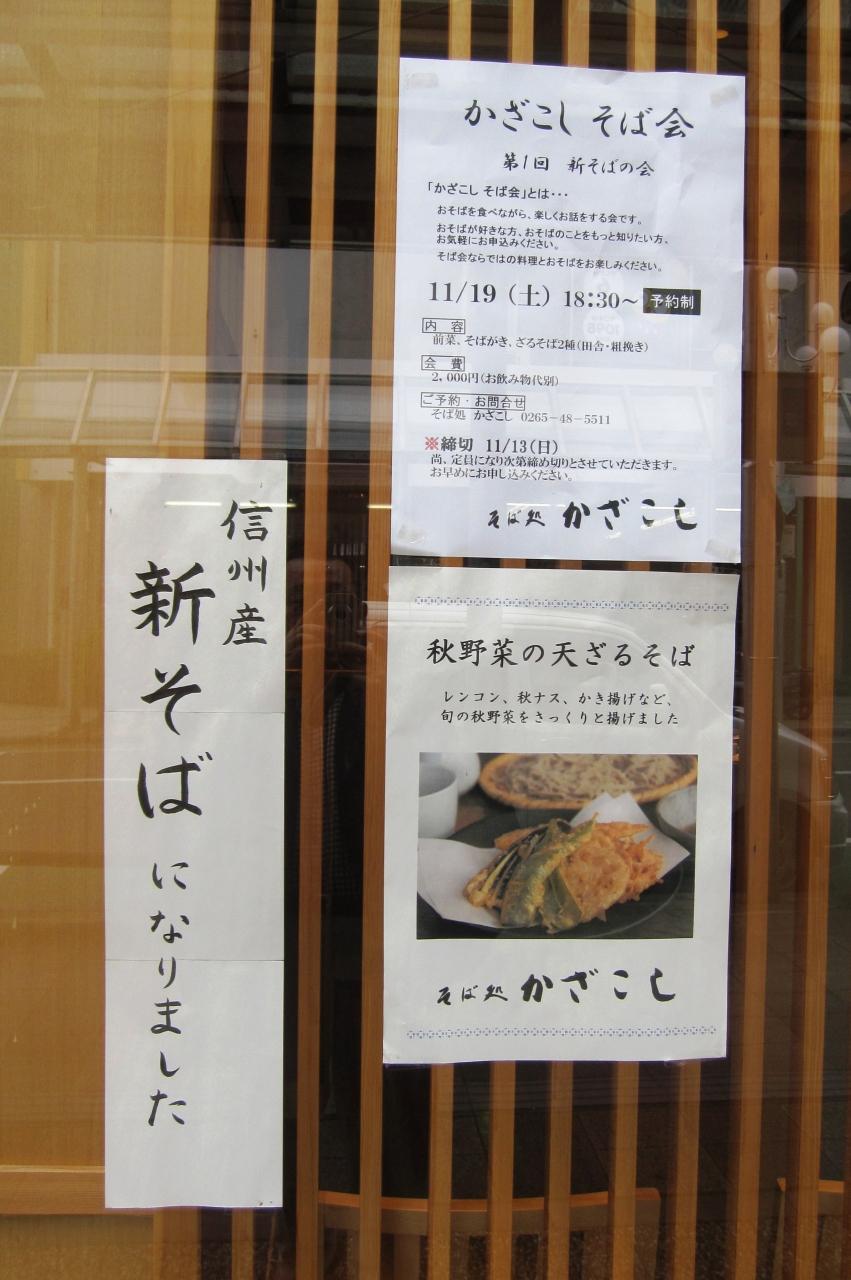 かざこし そば会
第1回 新そばの会
「かざこし そば会」とは・・・
おそばを食べながら、楽しくお話をする会です。
おそばが好きな方、おそばのことをもっと知りたい方、
お気軽にお申込みください。
そば会ならではの料理とおそばをお楽しみください。
11/19（土）18:30～ 予約制
内 容
前菜、そばがき、ざるそば2種（田舎・粗挽き）
会 費
2,000円（お飲み物代別）
ご予約・お問合せ
そば処 かざこし 0265-48-5511
※締切 11/13（日）
尚、定員になり次第締め切りとさせていただきます。
お早めにお申し込みください。
そば処 かざこし
信州産
新そばになりました
秋野菜の天ざるそば
レンコン、秋ナス、かき揚げなど、
旬の秋野菜をさっくりと揚げました
そば処 かざこし